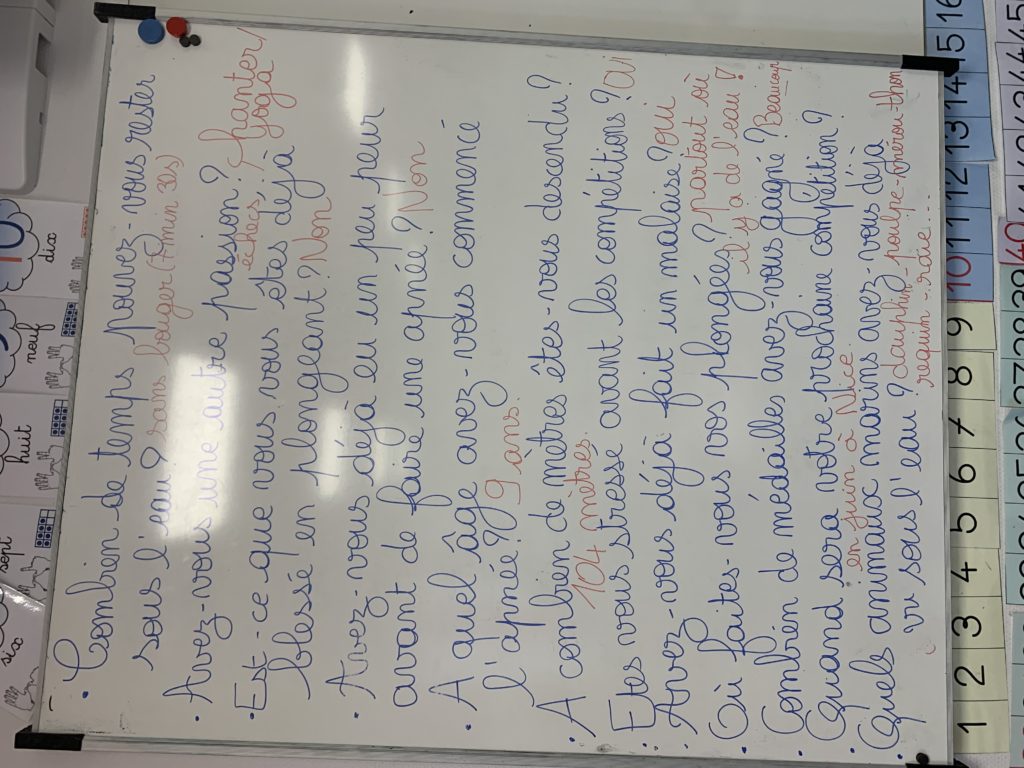 - • Combien de temps pouvez-vous rester
sous l'eau? sans bouger (7min 30s)
• Avez-vous une autre passion? échecs, chanter/
yoga
• Est-ce que vous vous êtes déjà
blessé en plongeant? Non
• Avez-vous déjà eu un peu peur
avant de faire une apnée? Non
• A quel âge avez-vous commencé
l'apnée? 19 ans.
• À combien de mètres êtes-vous descendu?
104 mètres.
Etes vous stressé avant les compétitions? Oui
• Avez-vous déjà fait un malaise? oui
• Où faites-vous vos plongées? partout où
il y a de l'eau!
• Combien de médailles avez-vous gagné? Beaucoup
• Quand sera votre prochaine compétition?
en juin à Nice.
• Quels animaux marins avez-vous déjà
vu sous l'eau? dauphin-poulpe-mérou-thon
requin-raie....
six
sept
huit
neuf
10
dix
1 2 3 4 5 6 7 8 9 10 11 12 13 14 15 16
40